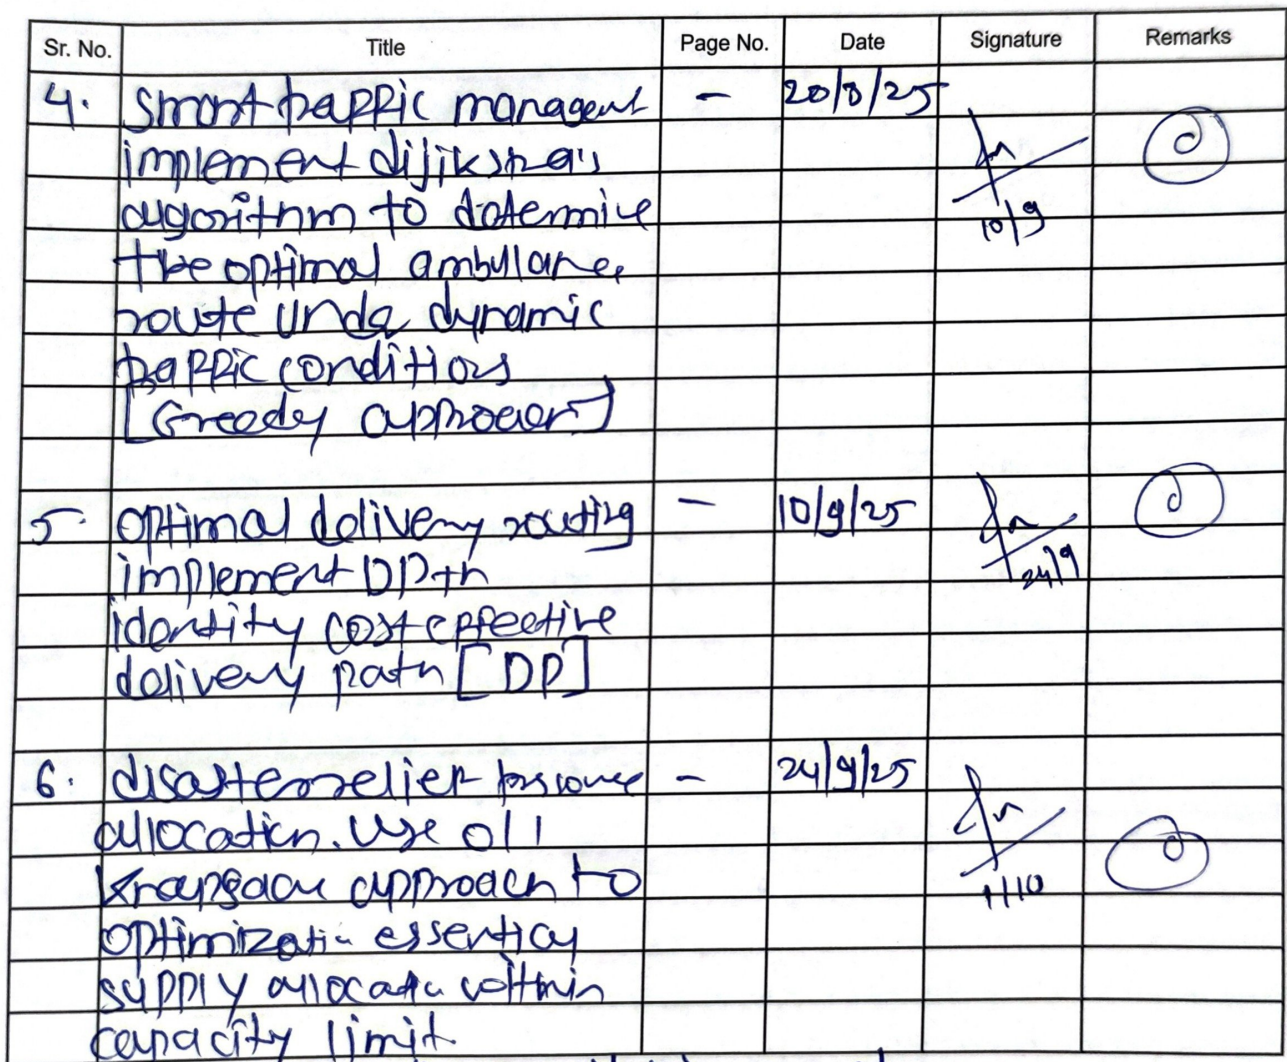 Sr. No. Title Page No. Date Signature Remarks
4. Smart traffic managent - 20/8/25
implement dijikstra's
algorithm to determine 10/9
the optimal ambulance
route under dynamic
traffic conditions
[Greedy approach]
5. optimal delivery routing - 10/9/25
implement DP to 24/9
identity cost effective
delivery path [DP]
6. disaster relief resource - 24/9/25
allocation. Use 0/1
knapsack approach to 1/10
optimization essential
supply allocation within
capacity limit